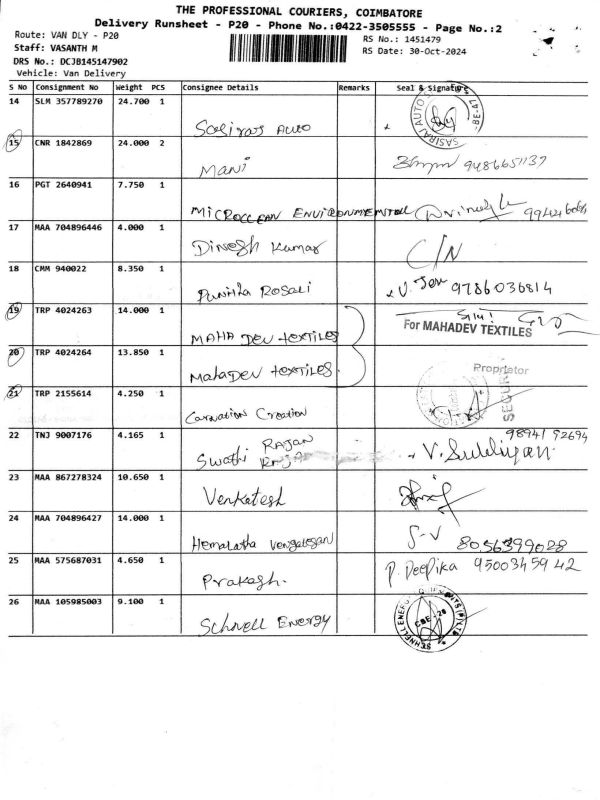 THE PROFESSIONAL COURIERS, COIMBATORE
Delivery Runsheet - P20 - Phone No.:0422-3505555 - Page No.:2
Route: VAN DLY - P20
RS No.: 1451479
Staff: VASANTH M
RS Date: 30-Oct-2024
DRS No.: DCJB145147902
Vehicle: Van Delivery
S No Consignment No Weight PCS Consignee Details Remarks Seal & Signature
14 SLM 357789270 24.700 1 Sasiraj Auto SASIRAJ AUTO
15 CNR 1842869 24.000 2 Mani
16 PGT 2640941 7.750 1 MICROCLEAN ENVIRONMENTAL
17 MAA 704896446 4.000 1 Dinesh Kumar C/N
18 CMM 940022 8.350 1 9786036814
19 TRP 4024263 14.000 1 MAHADEV textiles For MAHADEV TEXTILES
20 TRP 4024264 13.850 1 MahaDEV textiles Proprietor
21 TRP 2155614 4.250 1 Carnation Creation SECUR
22 TNJ 9007176 4.165 1 Swathi RAJAN 98941 92694
23 MAA 867278324 10.650 1 Venkatesh
24 MAA 704896427 14.000 1 Hemalatha Vengatesan S-V 8056399028
25 MAA 575687031 4.650 1 Prakash. P. Deepika 9500345942
26 MAA 105985003 9.100 1 Schnell Energy